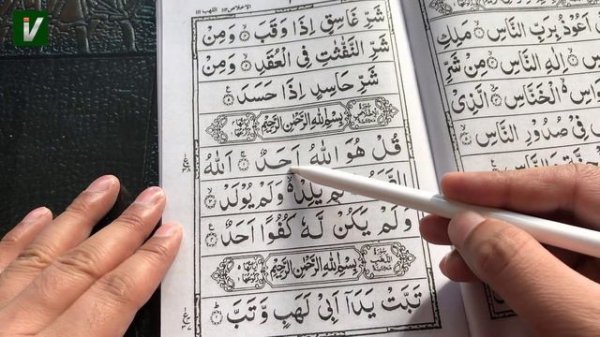 اَعُوْذُ بِرَبِّ النَّاسِ ۙ مَلِكِ
اِلٰهِ النَّاسِ ۙ مِنْ شَرِّ
الْخَنَّاسِ ۙ الَّذِیْ
فِیْ صُدُوْرِ النَّاسِ
الاخلاص ١١٢ اللهب ١١١
شَرِّ غَاسِقٍ اِذَا وَقَبَ ۙ وَمِنْ
شَرِّ النَّفّٰثٰتِ فِی الْعُقَدِ ۙ وَمِنْ
شَرِّ حَاسِدٍ اِذَا حَسَدَ
بِسْمِ اللّٰهِ الرَّحْمٰنِ الرَّحِیْمِ
قُلْ هُوَ اللّٰهُ اَحَدٌ ۚ اَللّٰهُ
یَلِدْ ۙ وَلَمْ یُوْلَدْ ۙ
وَلَمْ یَكُنْ لَّهٗ كُفُوًا اَحَدٌ
بِسْمِ اللّٰهِ الرَّحْمٰنِ الرَّحِیْمِ
تَبَّتْ یَدَاۤ اَبِیْ لَهَبٍ وَّتَبَّ